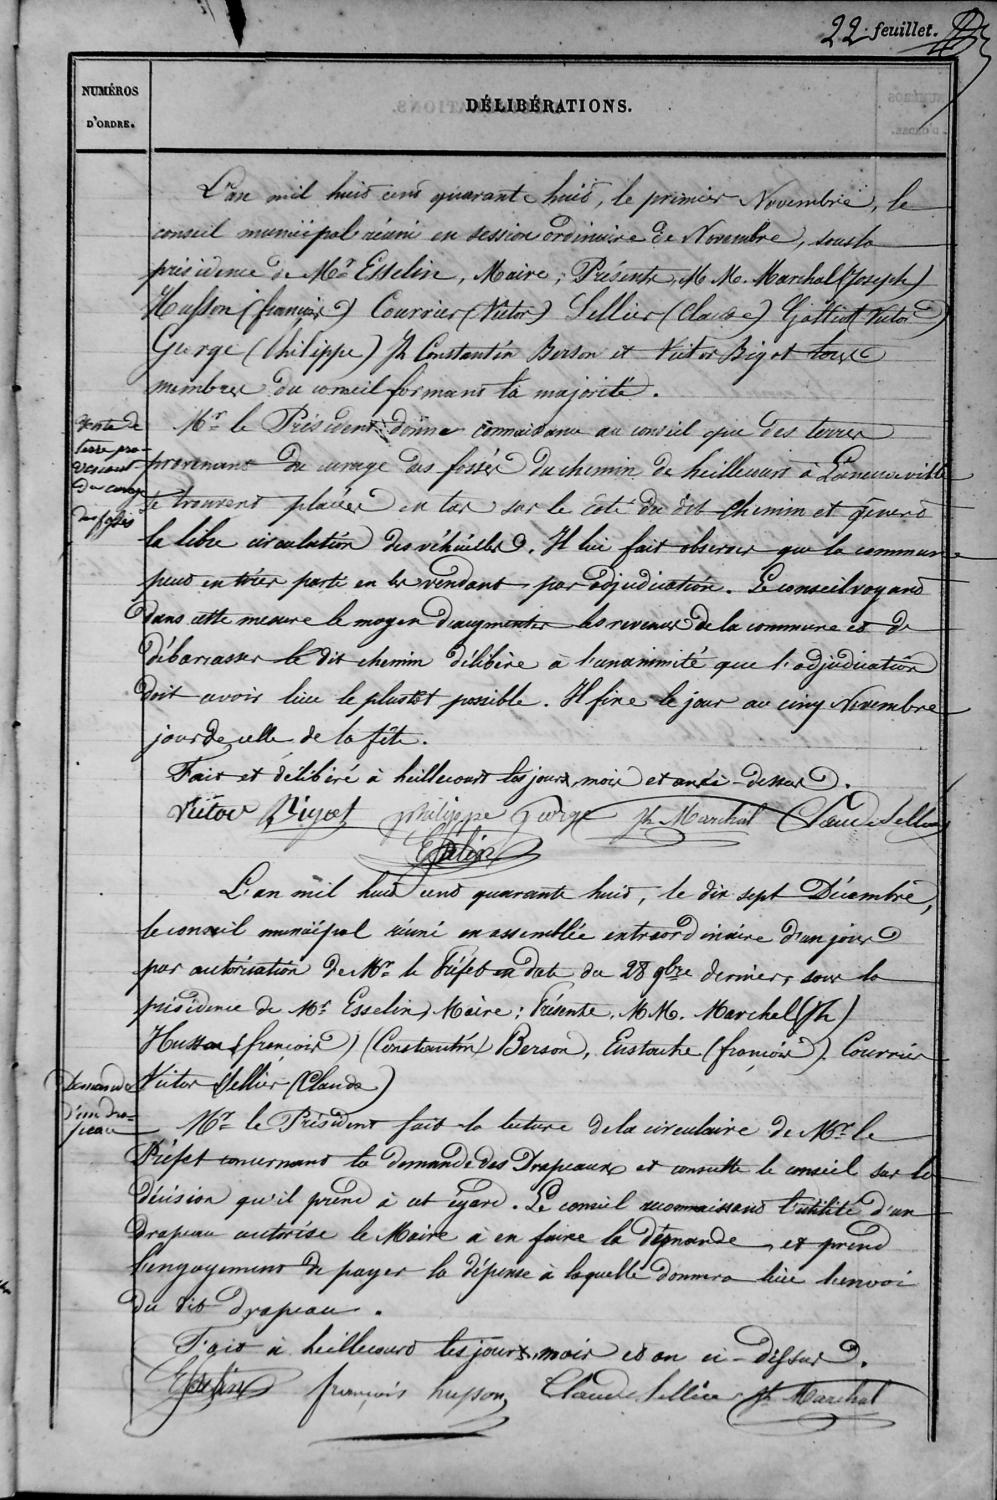 22 feuillet.
NUMÉROS
D'ORDRE.
DÉLIBÉRATIONS.
L'an mil huit cent quarante huit, le premier Novembre, le
conseil municipal réuni en session ordinaire de Novembre, sous la
présidence de Mr Esselin, Maire; Présents, M.M. Marchal (Joseph)
Husson (françois) Courrier (Victor) Sellier (Claude) (Victor)
George (Philippe) Jh Constantin Berson et Victor Bigot tous
membres du conseil formant la majorité.
vente de
terre pro-
venant
du curage
des fossés
Mr le Président donne connaissance au conseil que des terres
provenant du curage des fossés du chemin de heillecourt à Laneuveville
se trouvent placées en tas sur le coté du dit chemin et gènent
la libre circulation des véhicules. Il lui fait observer que la commune
peut en tirer parti en les vendant par adjudication. Le conseil voyant
dans cette mesure le moyen d'augmenter les revenus de la commune et de
débarrasser le dit chemin délibère à l'unanimité que l'adjudication
doit avoir lieu le plustot possible. Il fixe le jour au cinq Novembre
jour de celle de la fête.
Fait et délibéré à heillecourt les jours, mois et an ci-dessus.
Victor Bigot philippe george Jh Marchal Claude Sellier
Esselin
L'an mil huit cent quarante huit, le dix sept Décembre,
le conseil municipal réuni en assemblée extraordinaire d'un jour
par autorisation de Mr le Préfet en date du 28 9bre dernier, sous la
présidence de Mr Esselin, Maire; Présents, M.M. Marchal (Jh)
Husson (françois) (Constantin) Berson, Eustache (françois) Courrier
Victor Sellier (Claude)
Demande
d'un dra-
peau
Mr le Président fait la lecture de la circulaire de Mr le
Préfet concernant la demande des Drapeaux et consulte le conseil sur la
décision qu'il prend à cet égard. Le conseil reconnaissant l'utilité d'un
drapeau autorise le Maire à en faire la demande, et prend
l'engagement de payer la dépense à laquelle donnera lieu l'envoi
du dit drapeau.
Fait à heillecourt les jours, mois et an ci-dessus.
Esselin françois husson Claude Sellier Jh Marchal